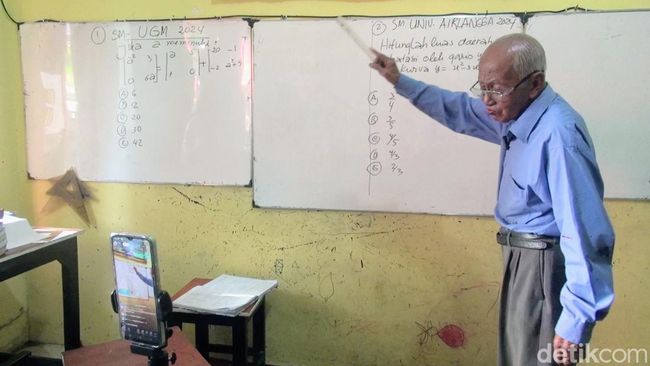 ① SM- UGM 2024
Jika a memenuhi
a² 3
0 6a
=
1 0
+
-20 -1
-2 a²+5
Ⓐ 6
Ⓑ 12
Ⓒ 20
Ⓓ 30
Ⓔ 42
② SM UNIV. AIRLANGGA 2024
Hitunglah luas daerah
oleh garis y
kurva y = x²
Ⓐ 3/4
Ⓑ 3/5
Ⓒ 4/5
Ⓓ 4/3
Ⓔ 2/3
detikcom